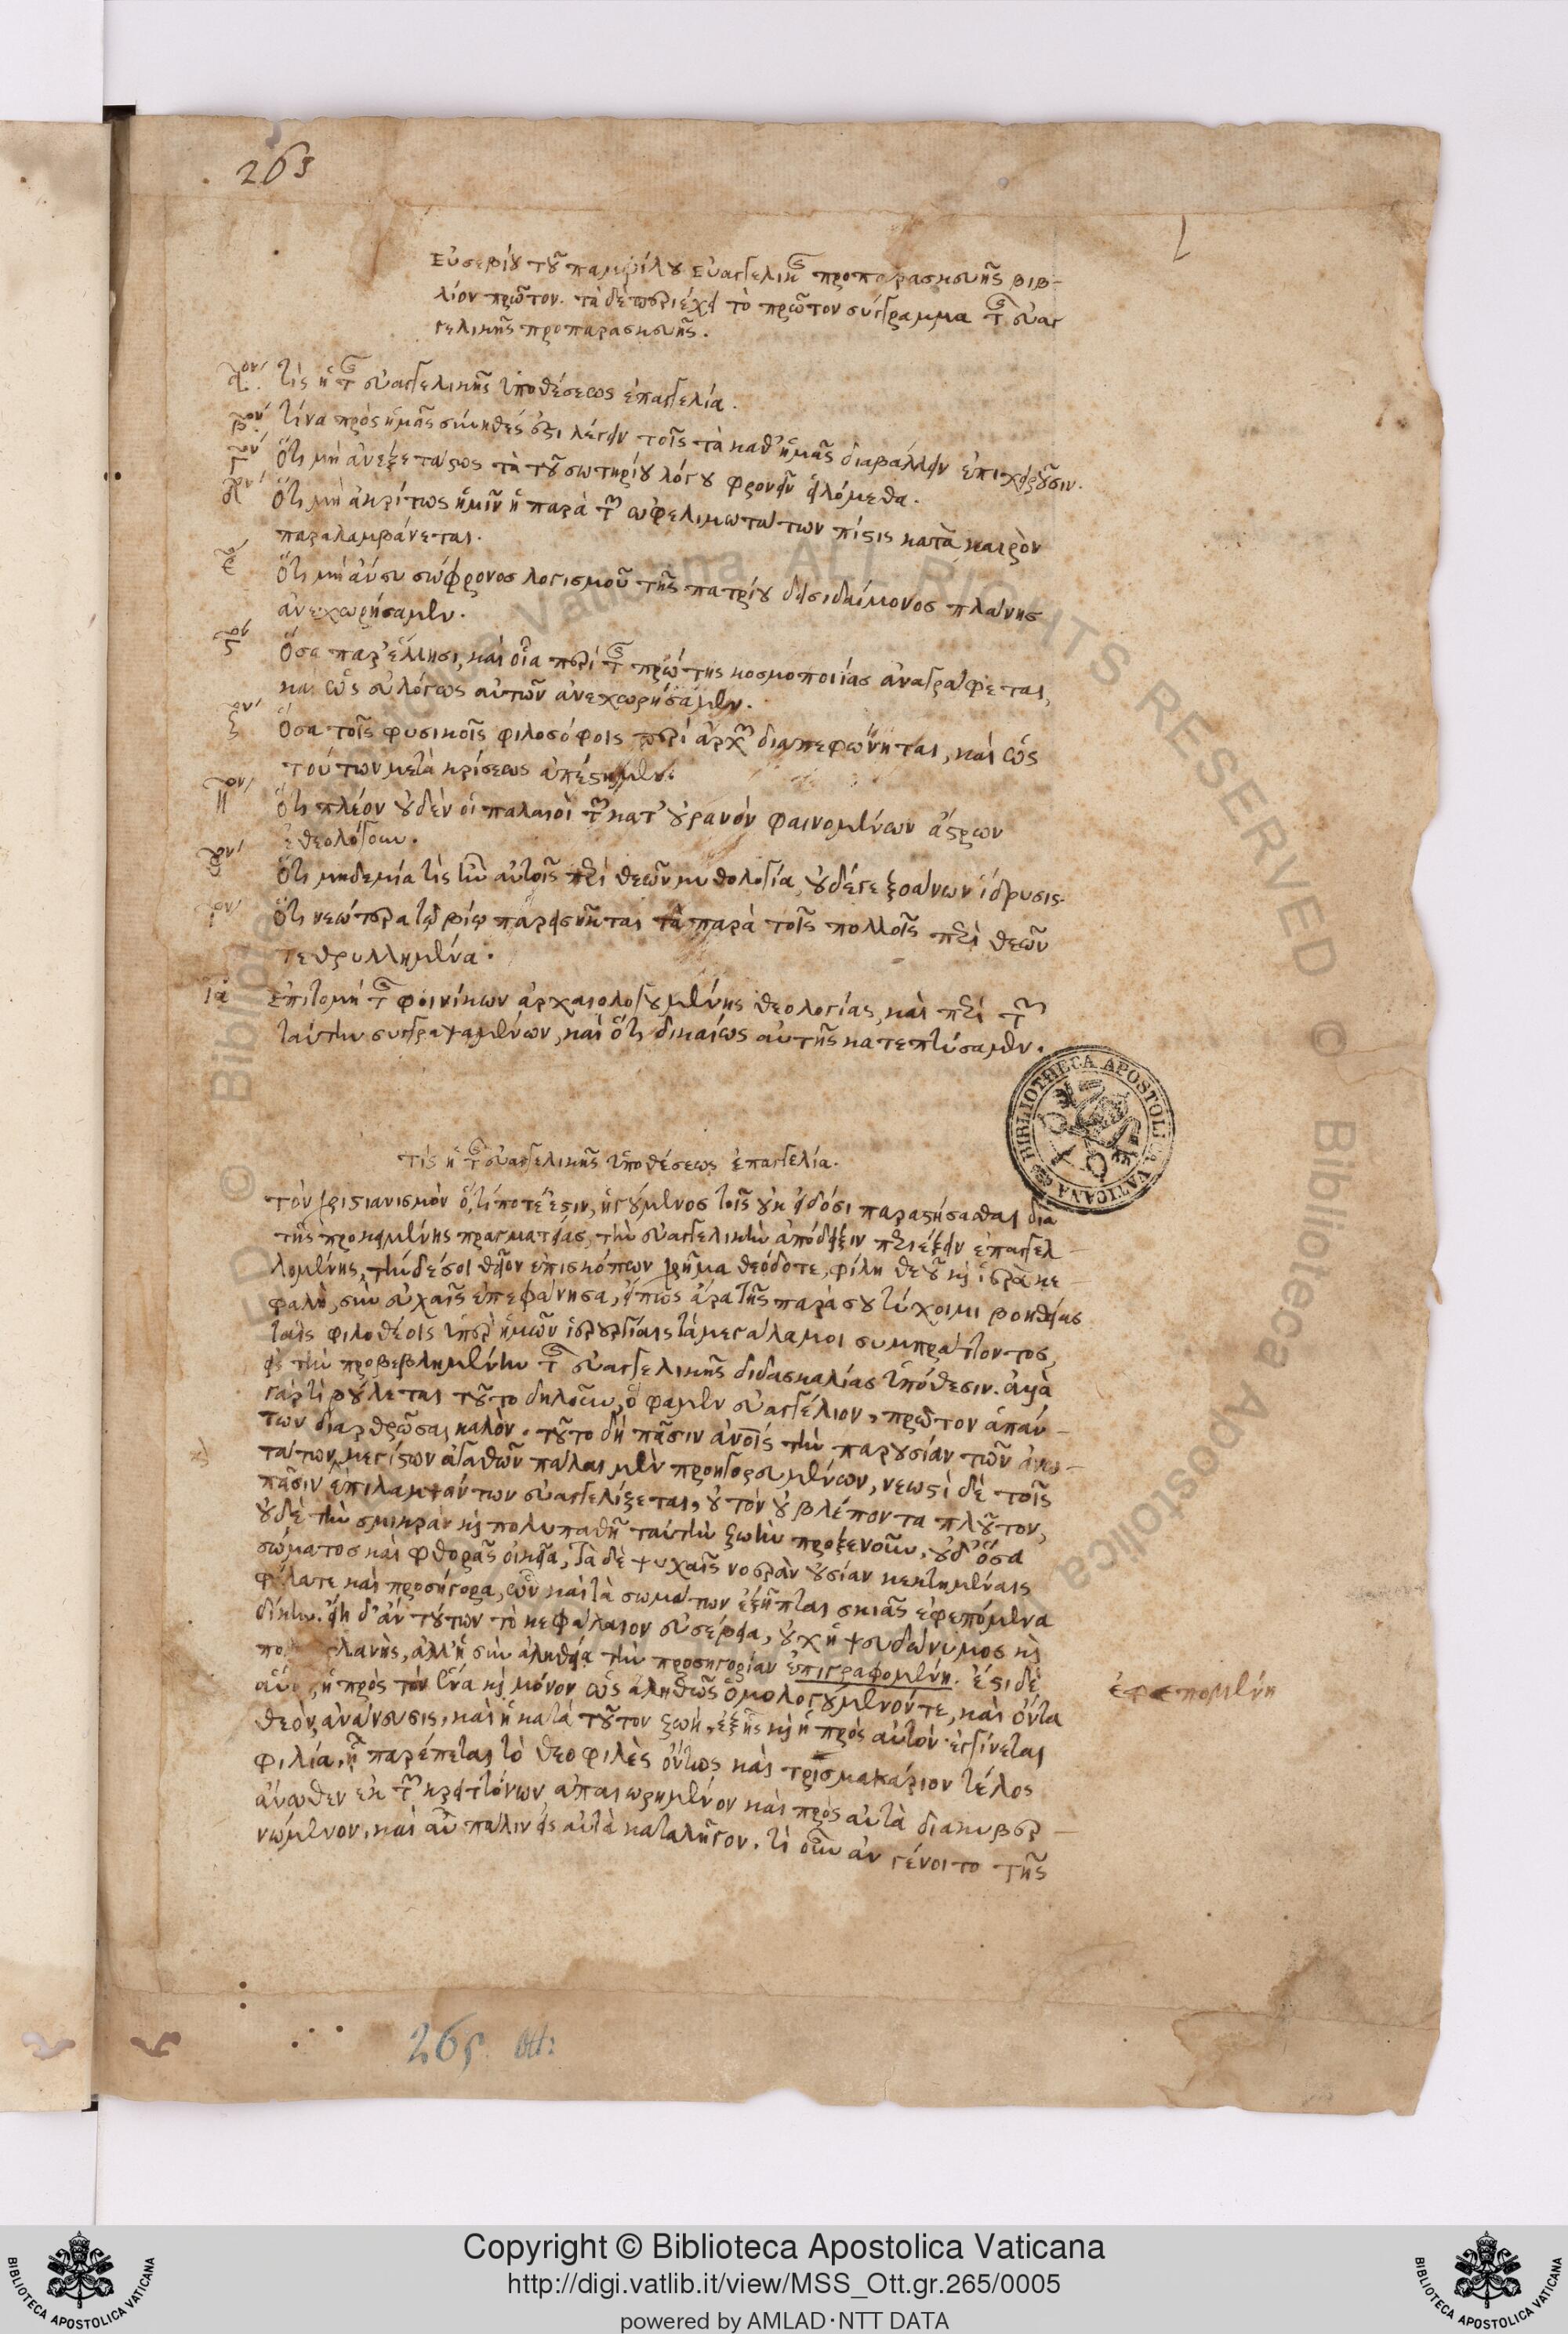 263
1
Εὐσεβίου τοῦ παμφίλου Εὐαγγελικῆς προπαρασκευῆς βιβ-
λίον πρῶτον. τὰ δὲ περιέχει τὸ πρῶτον σύγγραμμα τῆς εὐαγ
γελικῆς προπαρασκευῆς.
αον τίς ἡ τῆς εὐαγγελικῆς ὑποθέσεως ἐπαγγελία.
βον τίνα πρὸς ἡμᾶς σύνηθές ἐστι λέγειν τοῖς τὰ καθ' ἡμᾶς διαβάλλειν ἐπιχειροῦσιν.
γον ὅτι μὴ ἀνεξετάστως τὰ τοῦ σωτηρίου λόγου φρονεῖν εἱλόμεθα.
δον ὅτι μὴ ἀκρίτως ἡμῖν ἡ παρὰ τῶν ὠφελιμωτάτων πίστις κατὰ καιρὸν
παραλαμβάνεται.
εον ὅτι μὴ ἄνευ σώφρονος λογισμοῦ τῆς πατρίου δεισιδαίμονος πλάνης
ἀνεχωρήσαμεν.
ϛον ὅσα παρ' ἕλλησι, καὶ οἷα περὶ τῆς πρώτης κοσμοποιίας ἀναγράφεται,
καὶ ὡς εὐλόγως αὐτῶν ἀνεχωρήσαμεν.
ζον ὅσα τοῖς φυσικοῖς φιλοσόφοις περὶ ἀρχῶν διαπεφώνηται, καὶ ὡς
τούτων μετὰ κρίσεως ἀπέστημεν.
ηον ὅτι πλέον οὐδὲν οἱ παλαιοὶ τῶν κατ' οὐρανὸν φαινομένων ἄστρων
ἐθεολόγουν.
θον ὅτι μηδεμία τίς ἦν αὐτοῖς περὶ θεῶν μυθολογία, οὐδέ γε ξοάνων ἵδρυσις.
ιον ὅτι νεώτερα τῷ βίῳ παρεισῆκται τὰ παρὰ τοῖς πολλοῖς περὶ θεῶν
τεθρυλλημένα.
ια ἐπιτομὴ τῆς φοινίκων ἀρχαιολογουμένης θεολογίας, καὶ περὶ τῶν
ταύτην συγγραψαμένων, καὶ ὅτι δικαίως αὐτῆς κατεπτύσαμεν.
BIBLIOTHECA APOSTOLICA VATICANA
τίς ἡ τῆς εὐαγγελικῆς ὑποθέσεως ἐπαγγελία.
τὸν χριστιανισμὸν ὅ,τί ποτέ ἐστιν, ἡγούμενος τοῖς οὐκ εἰδόσι παραστήσασθαι διὰ
τῆς προκειμένης πραγματείας, τὴν εὐαγγελικὴν ἀπόδειξιν περιέξειν ἐπαγγελ-
λομένης, τήνδε σοι θεῖον ἐπισκόπων χρῆμα θεόδοτε, φίλη θεοῦ καὶ ἱερὰ κε-
φαλὴ, σὺν εὐχαῖς ἐπεφώνησα, εἴπως ἄρα τῆς παρὰ σου τύχοιμι βοηθείας
ταῖς φιλοθέοις ὑπὲρ ἡμῶν ἱερουργίαις τὰ μεγάλα μοι συμπράττοντος,
εἰς τὴν προβεβλημένην τῆς εὐαγγελικῆς διδασκαλίας ὑπόθεσιν. ἀλλὰ
γὰρ τί βούλεται τοῦτο δηλοῦν, ὃ φαμεν εὐαγγέλιον, πρῶτον ἁπάν-
των διαρθρῶσαι καλὸν. τοῦτο δὴ πᾶσιν ἀνοις τὴν παρουσίαν τῶν ἀνω-
τάτων μεγίστων ἀγαθῶν πάλαι μὲν προηγορευμένων, νεωστὶ δὲ τοῖς
πᾶσιν ἐπιλαμψάντων εὐαγγελίζεται, οὐ τὸν οὐ βλέποντα πλοῦτον,
οὐδὲ τὴν σμικρὰν καὶ πολυπαθῆ ταύτην ζωὴν προξενοῦν, οὐδ' ὅσα
σώματος καὶ φθορᾶς οἰκεῖα, τὰ δὲ ψυχαῖς νοερὰν οὐσίαν κεκτημέναις
φίλα τε καὶ προσήγορα, ὧν καὶ τὰ σωμάτων ἐξῆπται σκιᾶς ἐφεπόμενα
δίκην. εἴη δ' ἂν τούτων τὸ κεφάλαιον εὐσέβεια, οὐχ ἡ ψευδώνυμος καὶ
πολυπλανὴς, ἀλλ' ἡ σὺν ἀληθείᾳ τὴν προσηγορίαν ἐπιγραφομένη. ἔστι δὲ
αὕτη, ἡ πρὸς τὸν ἕνα καὶ μόνον ὡς ἀληθῶς ὁμολογούμενόν τε, καὶ ὄντα
θεὸν, ἀνάνευσις, καὶ ἡ κατὰ τοῦτον ζωὴ, ἐξ ἧς καὶ ἡ πρὸς αὐτὸν ἐγγίνεται
φιλία, ᾗ παρέπεται τὸ θεοφιλὲς ὄντως καὶ τρισμακάριον τέλος
ἄνωθεν ἐκ τῶν κρειττόνων ἀπαιωρημένον καὶ πρὸς αὐτὰ διακυβερ-
νώμενον, καὶ αὖ πάλιν εἰς αὐτὰ καταλῆγον. τί οὖν ἂν γένοιτο τῆς
ἐφεπομένη
265. Ott:
Copyright © Biblioteca Apostolica Vaticana
http://digi.vatlib.it/view/MSS_Ott.gr.265/0005
powered by AMLAD·NTT DATA